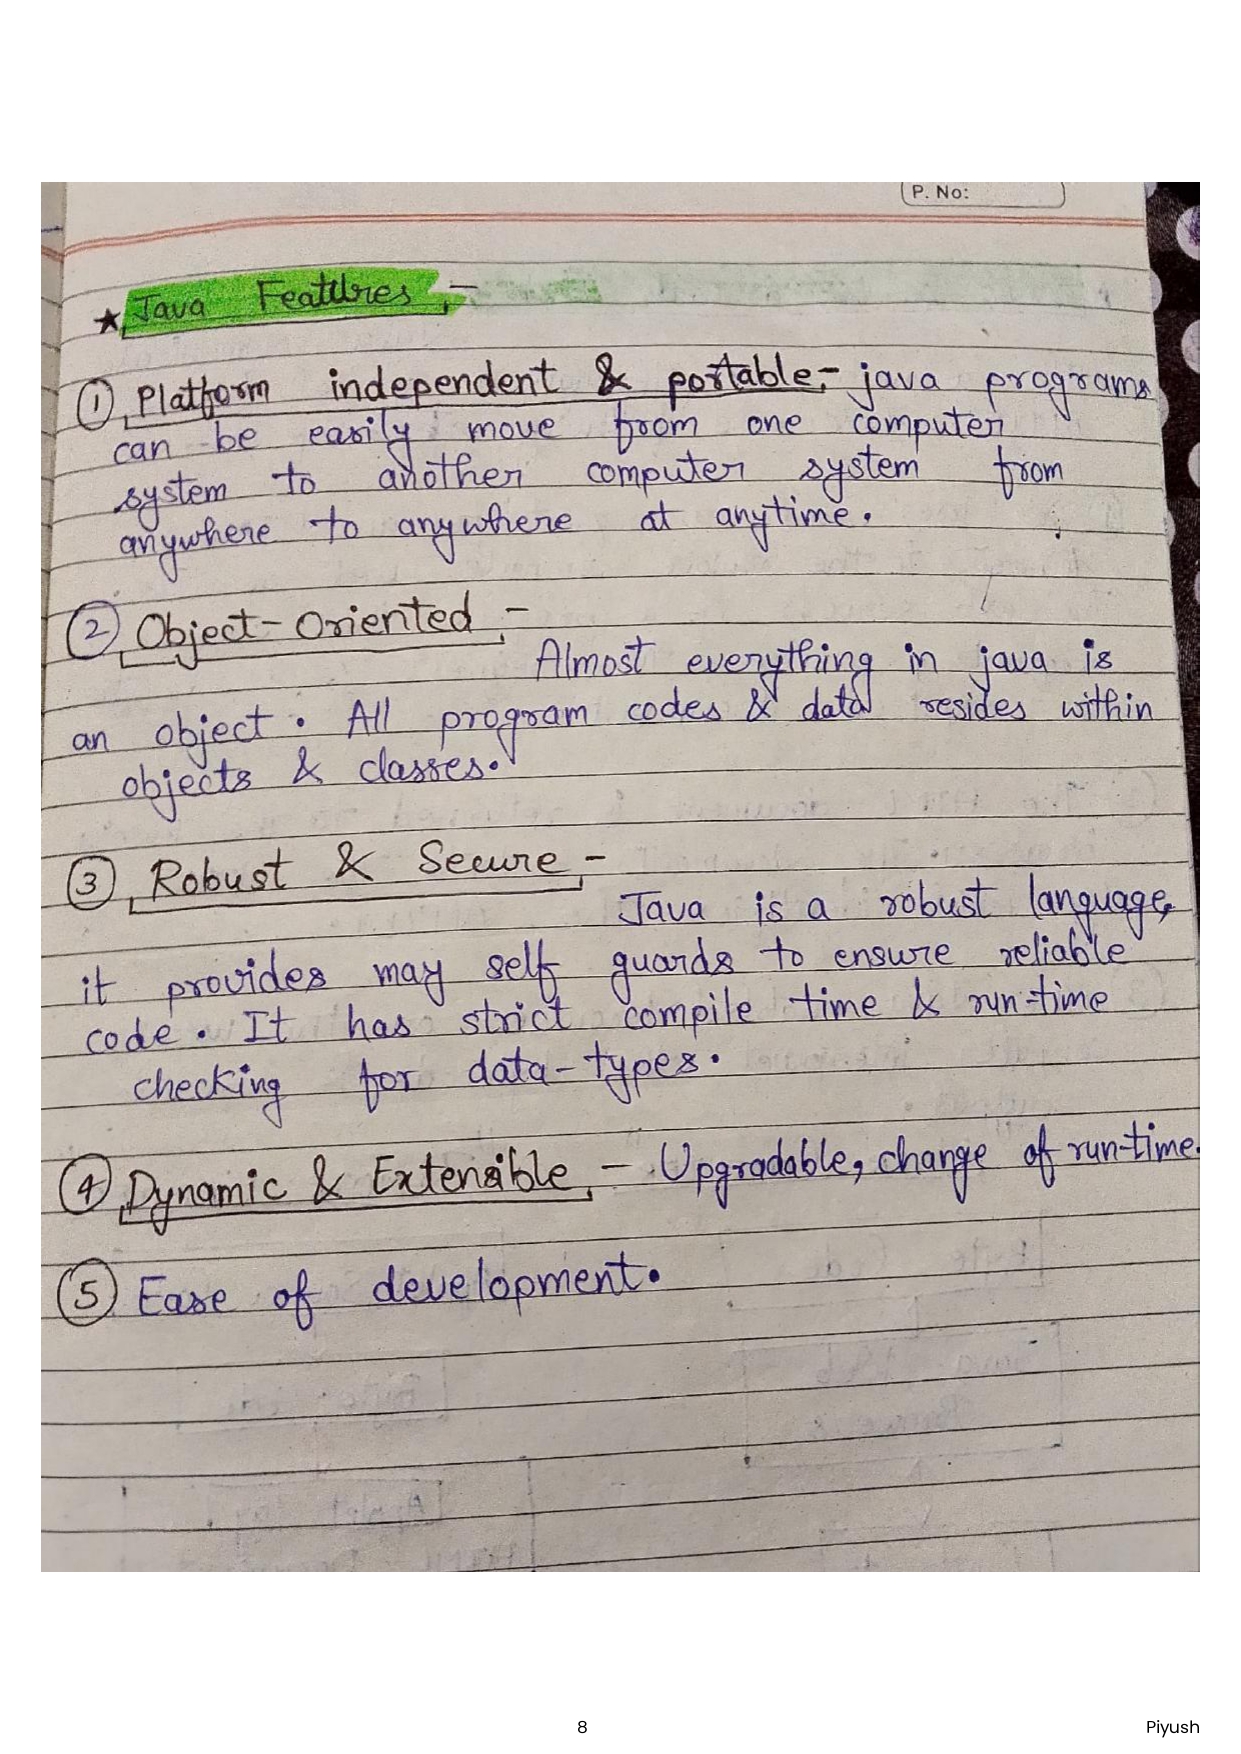 P. No:
★ Java Features :-
① Platform independent & portable :- java programs
can be easily move from one computer
system to another computer system from
anywhere to anywhere at anytime.
② Object-Oriented :-
Almost everything in java is
an object. All program codes & data resides within
objects & classes.
③ Robust & Secure :-
Java is a robust language,
it provides may self guards to ensure reliable
code. It has strict compile time & run-time
checking for data-types.
④ Dynamic & Extensible :- Upgradable, change of run-time.
⑤ Ease of development.
8
Piyush